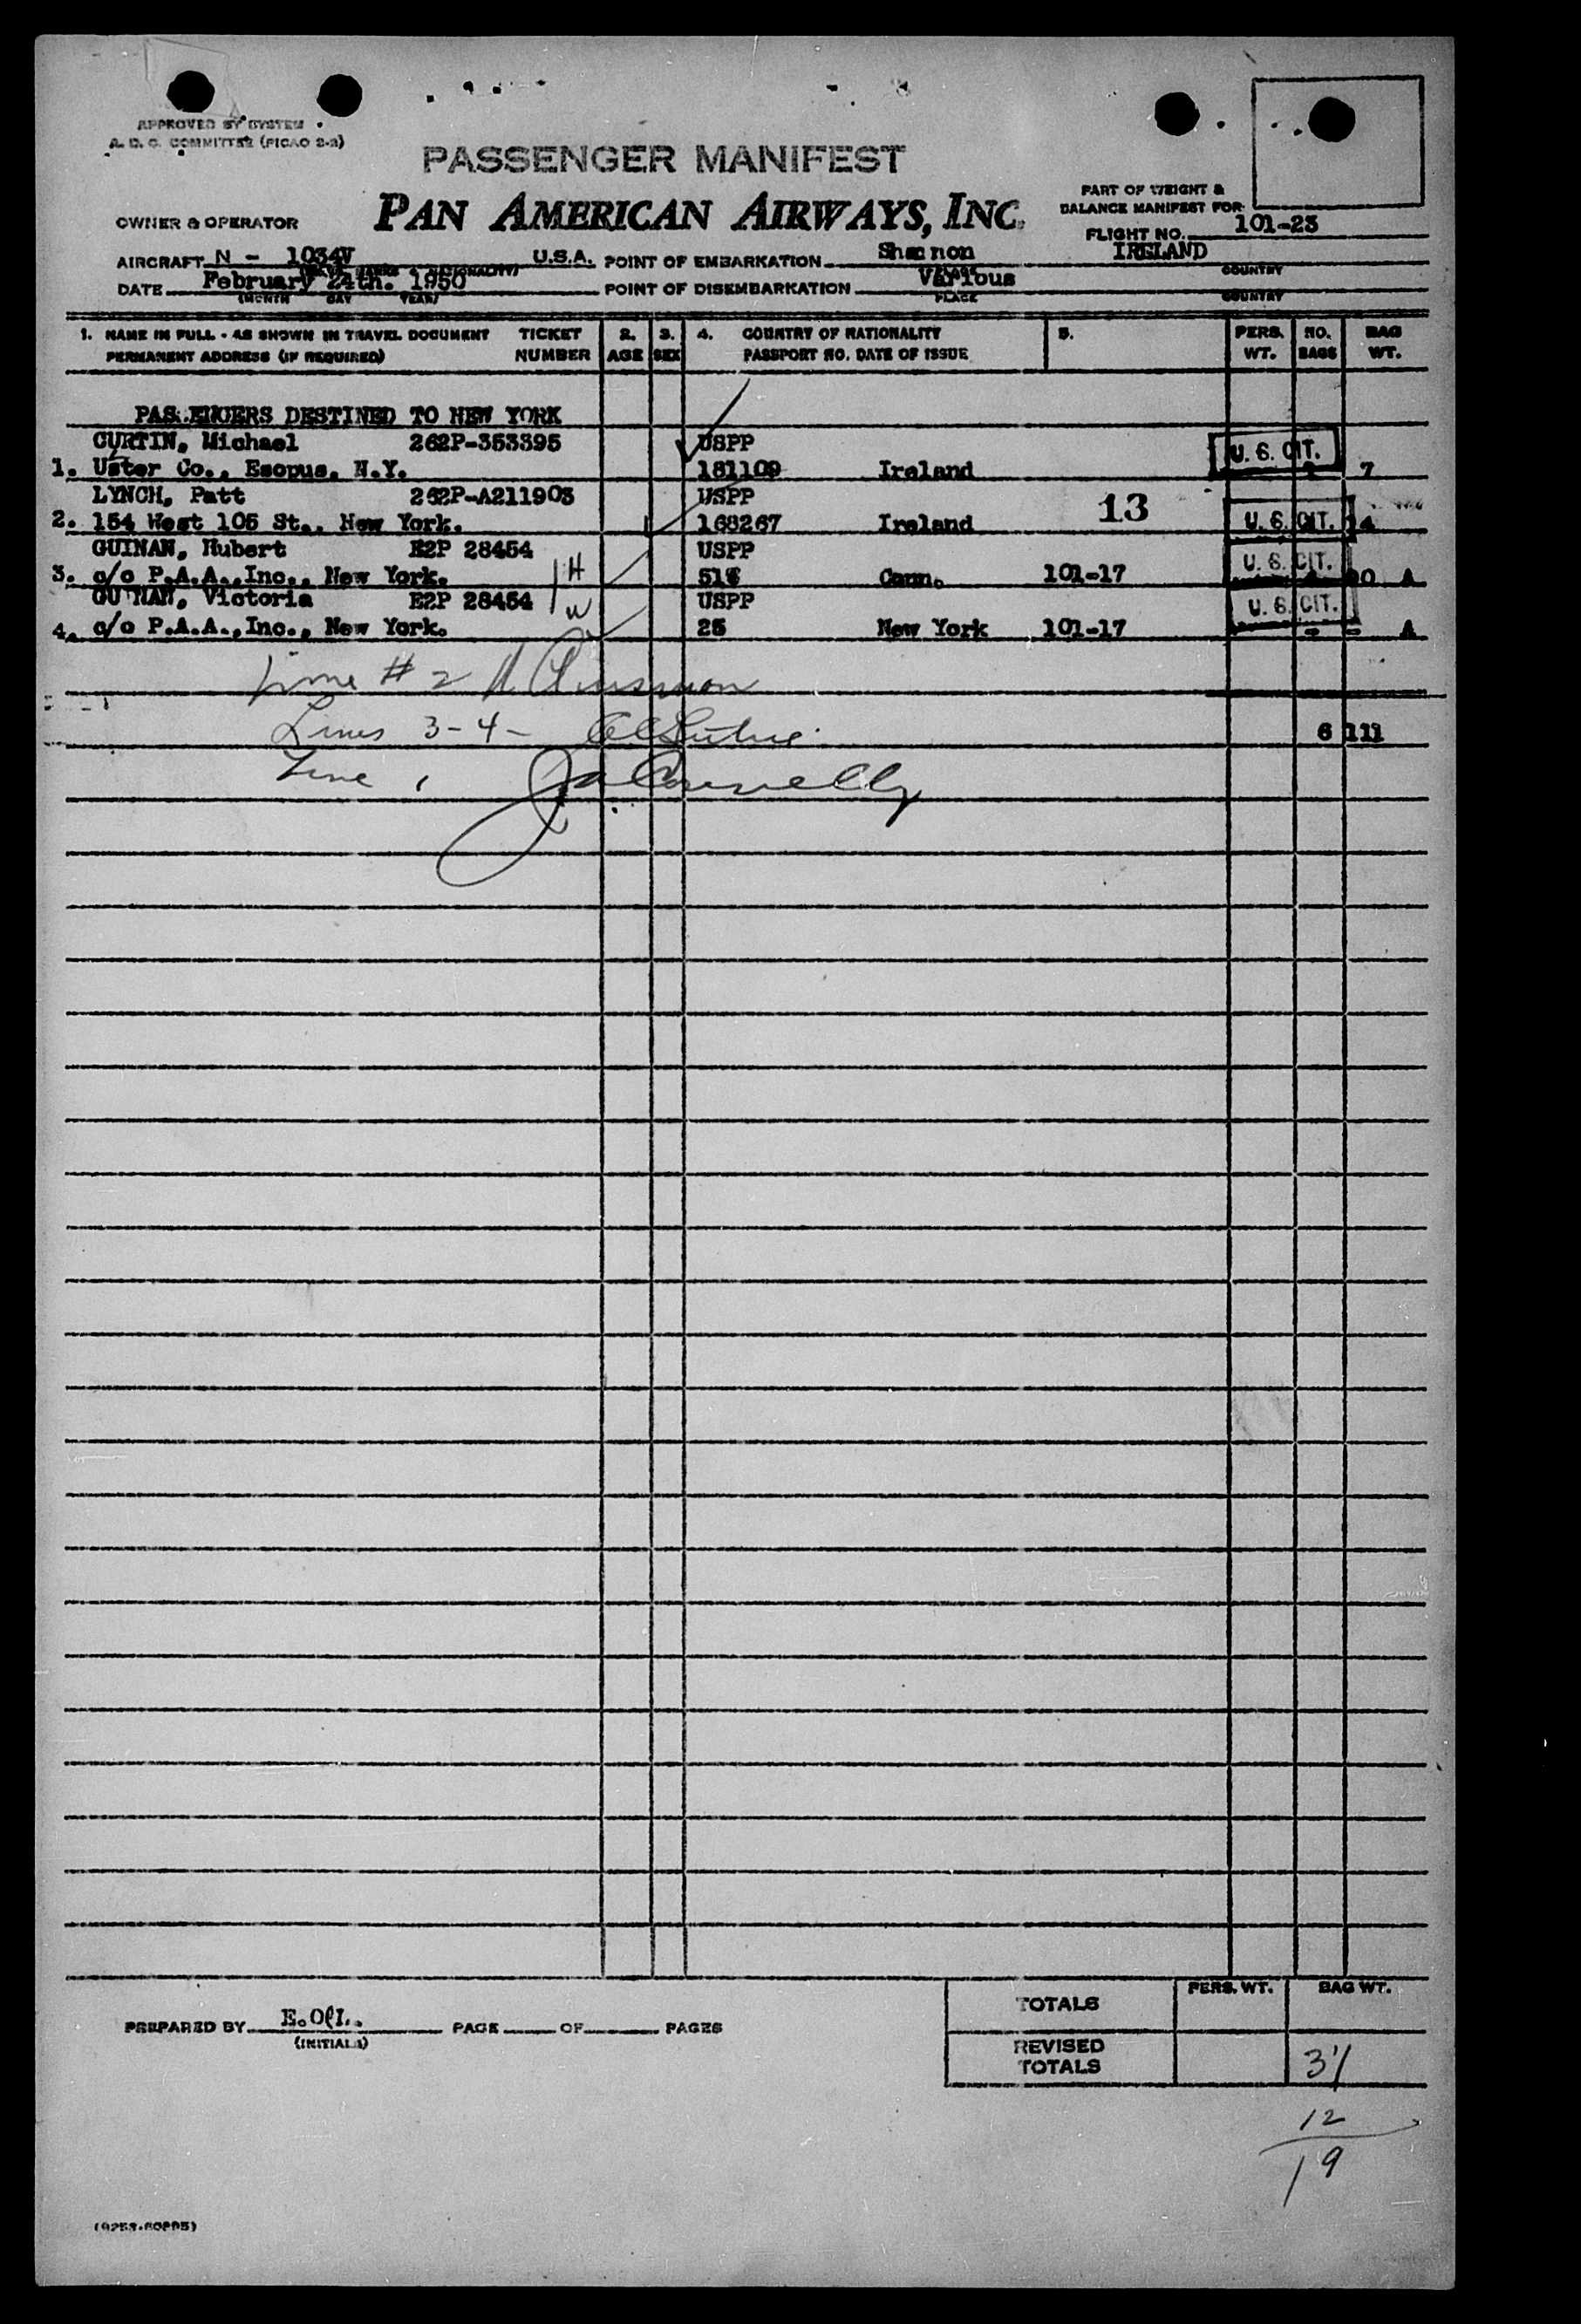 APPROVED BY SYSTEM
A. D. C. COMMITTEE (PICAO 2-3)
PASSENGER MANIFEST
PAN AMERICAN AIRWAYS, INC.
PART OF WEIGHT &
BALANCE MANIFEST FOR
OWNER & OPERATOR
FLIGHT NO. 101-23
AIRCRAFT N - 1034V U.S.A. POINT OF EMBARKATION Shannon IRELAND
COUNTRY
DATE February 24th. 1950 POINT OF DISEMBARKATION Various
(MONTH DAY YEAR) PLACE COUNTRY
1. NAME IN FULL - AS SHOWN IN TRAVEL DOCUMENT TICKET 2. 3. 4. COUNTRY OF NATIONALITY 5. PERS. NO. BAG
PERMANENT ADDRESS (IF REQUIRED) NUMBER AGE SEX PASSPORT NO. DATE OF ISSUE WT. BAGS WT.
PASSENGERS DESTINED TO NEW YORK
CURTIN, Michael 262P-353395 USPP U. S. CIT.
1. Uster Co., Esopus, N.Y. 181109 Ireland 7
LYNCH, Patt 262P-A211903 USPP 13
2. 154 West 105 St., New York. 168267 Ireland U. S. CIT. 4
GUINAN, Hubert E2P 28454 USPP U. S. CIT.
3. c/o P.A.A.,Inc., New York. H 518 Conn. 101-17 A
GUINAN, Victoria E2P 28454 W USPP U. S. CIT.
4. c/o P.A.A.,Inc., New York. 25 New York 101-17 - - A
Line # 2
Lines 3-4-
6 111
Line 1 J Connelly
PERS. WT. BAG WT.
TOTALS
PREPARED BY E.O'L. PAGE OF PAGES
(INITIALS)
REVISED
TOTALS 31
12
19